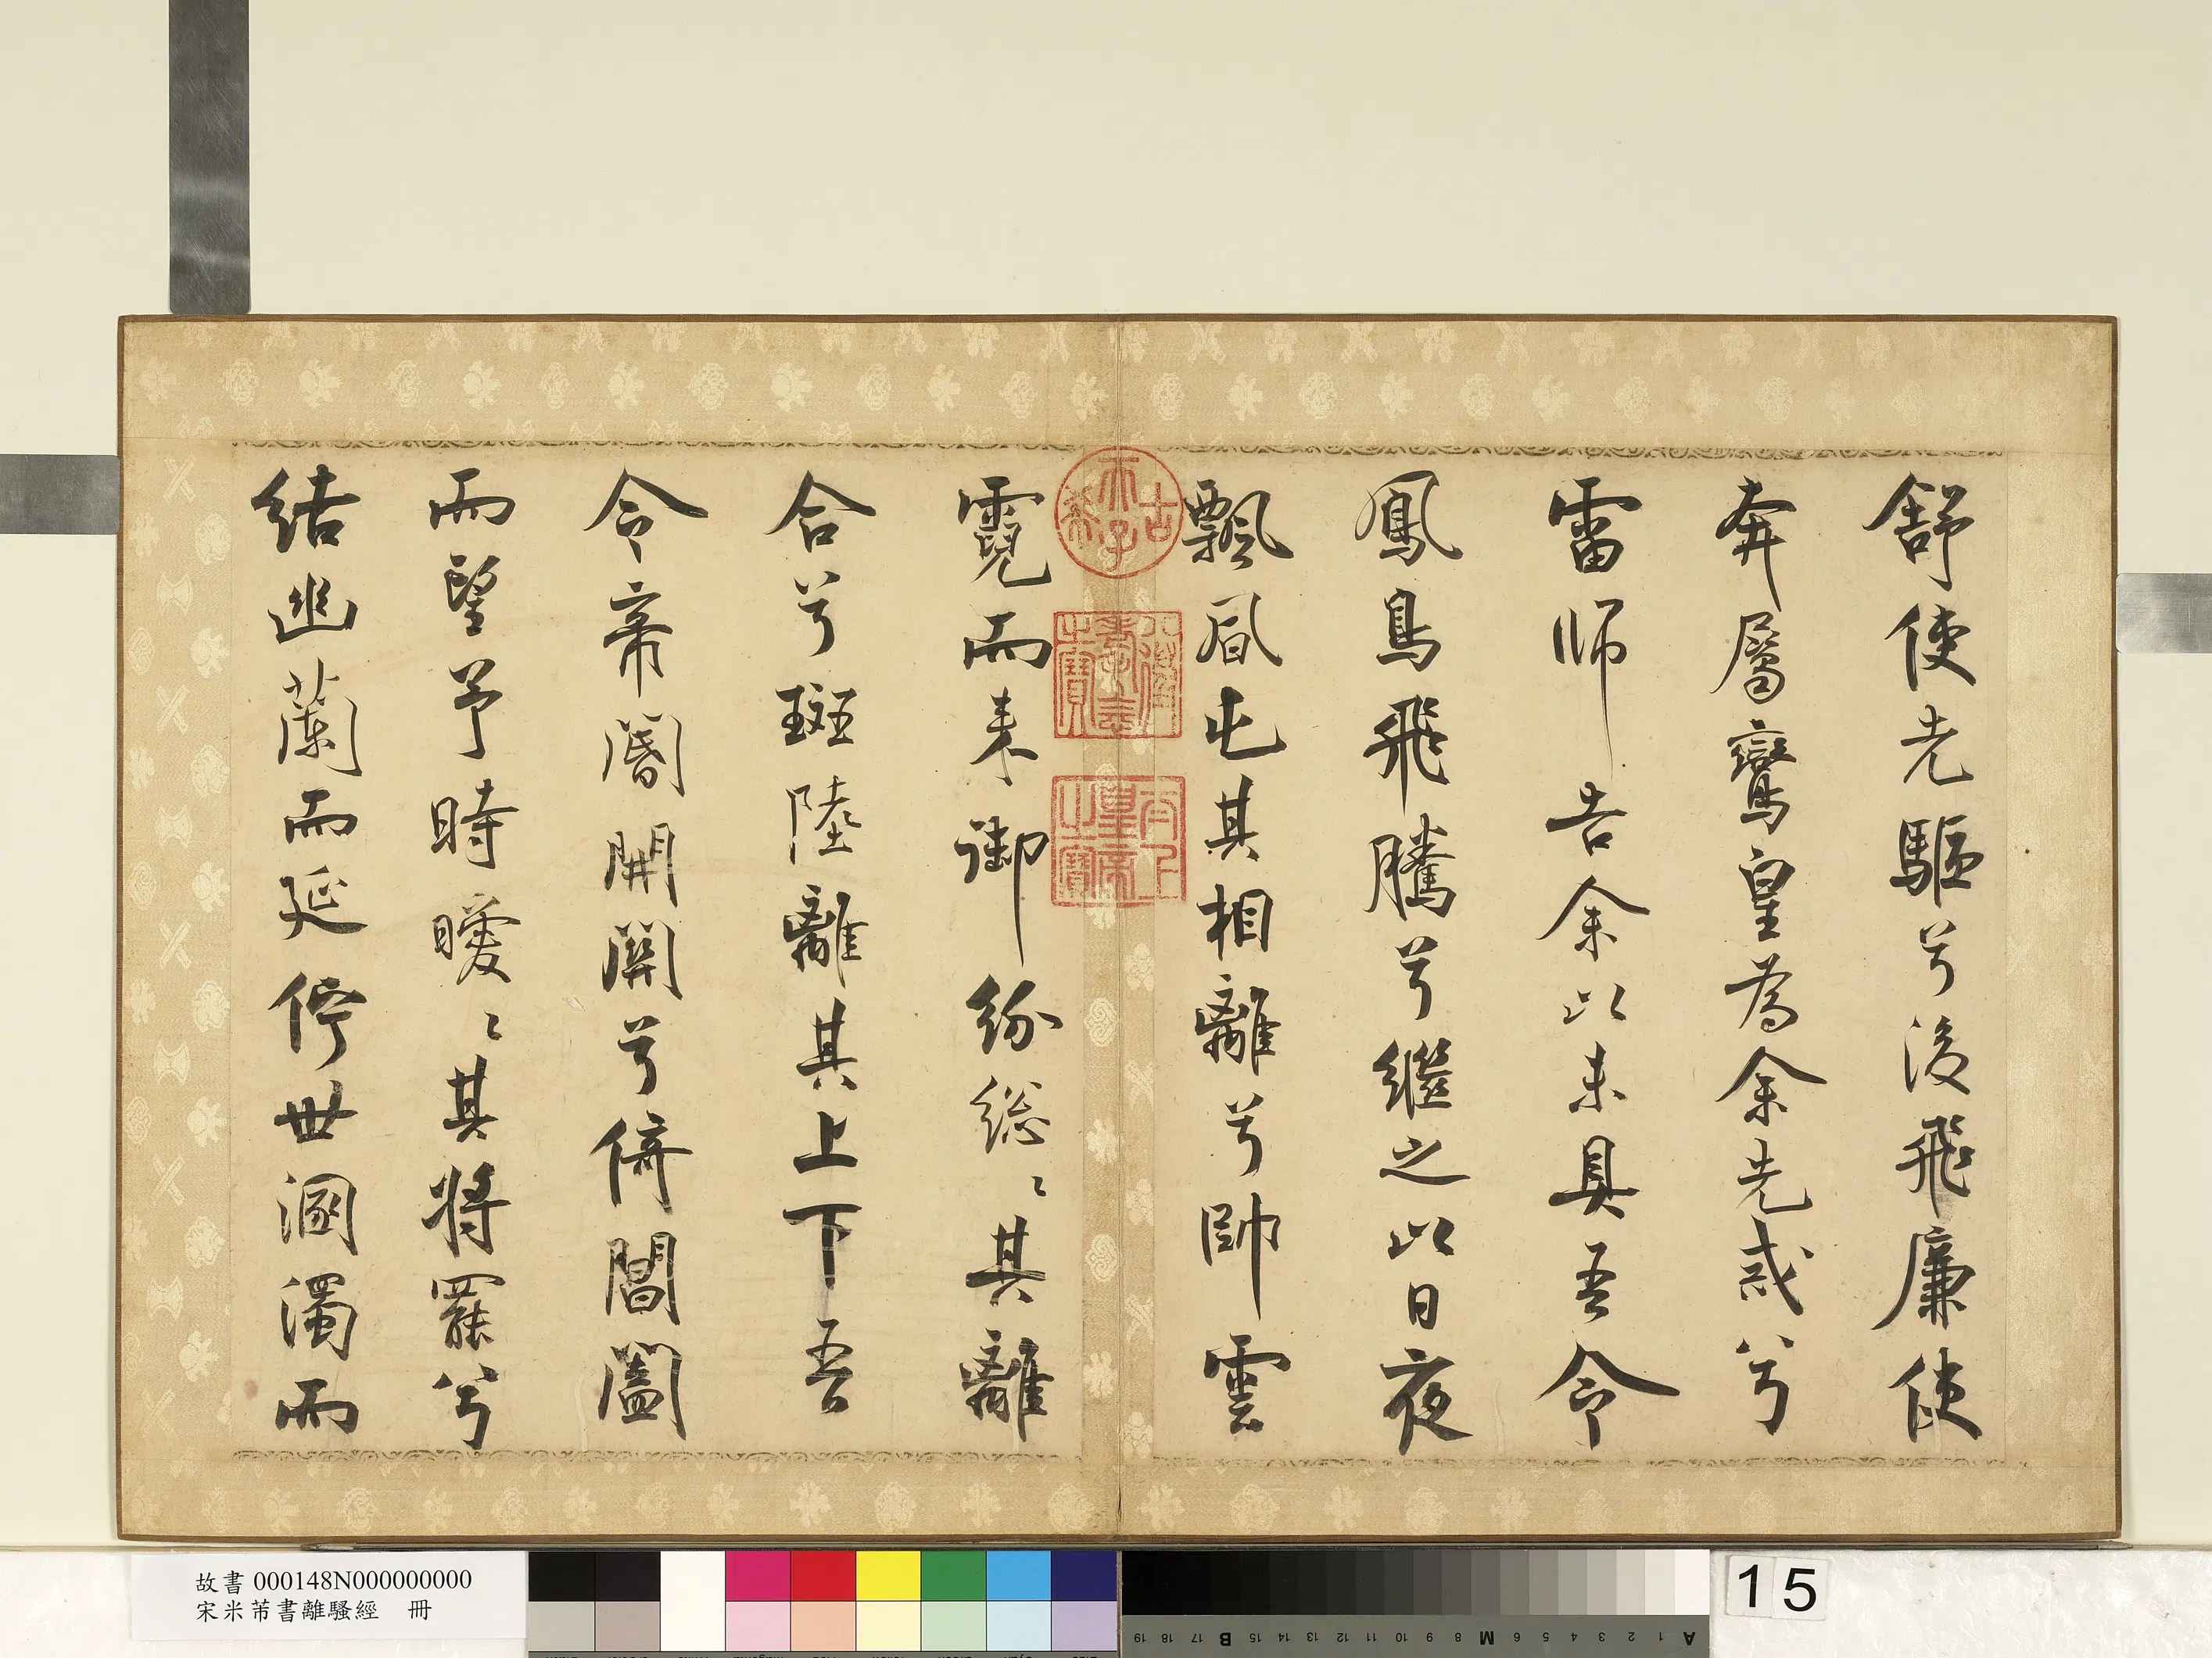 舒使先驅兮後飛廉使
奔屬鸞皇為余先戒兮
雷師告余以未具吾令
鳳鳥飛騰兮繼之以日夜
飄風屯其相離兮帥雲
霓而來御紛總〻其離
合兮斑陸離其上下吾
令帝閽開關兮倚閶闔
而望予時曖〻其將罷兮
結幽蘭而延佇世溷濁而
古希天子
八徵耄念之寶
太上皇帝之寶
故書 000148N000000000
宋米芾書離騷經 冊
15
A 1 2 3 4 5 6 M 8 9 10 11 12 13 14 15 B 17 18 19